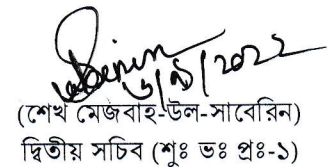 ৬/৯/২০২২
(শেখ মেজবাহ-উল-সাবেরিন)
দ্বিতীয় সচিব (শুঃ ভঃ প্রঃ-১)